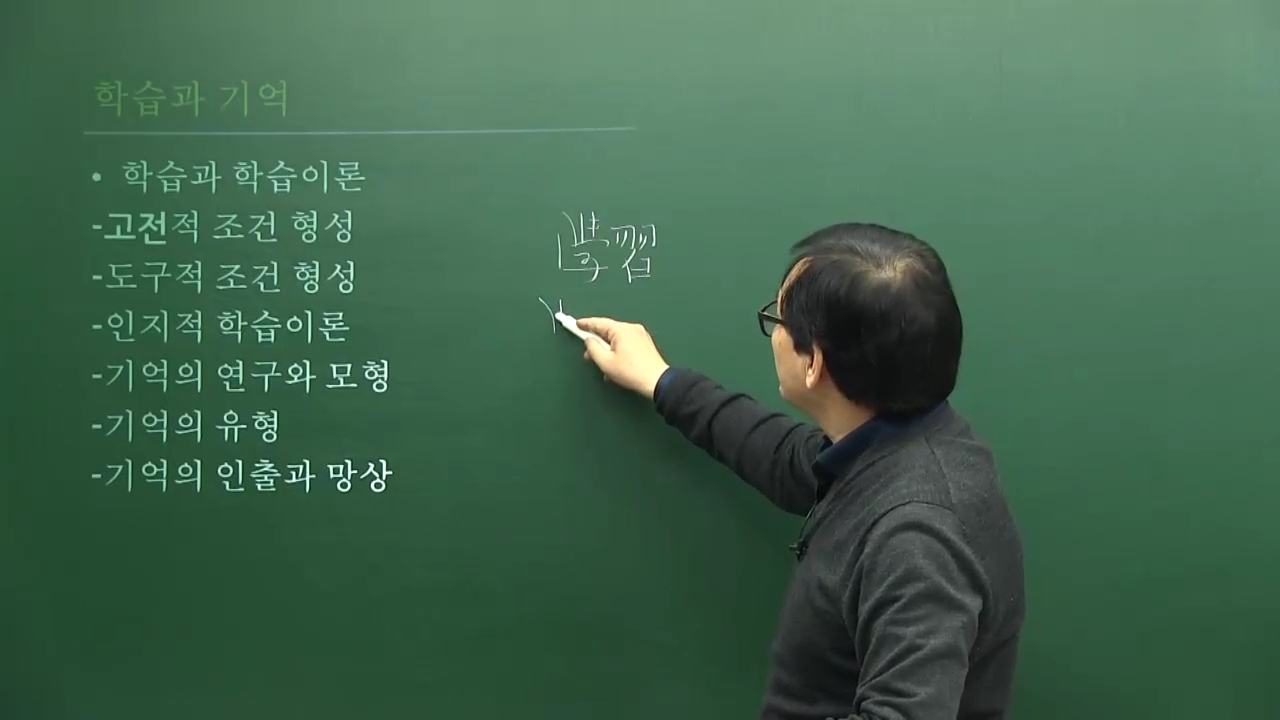 학습과 기억
• 학습과 학습이론
-고전적 조건 형성
-도구적 조건 형성
-인지적 학습이론
-기억의 연구와 모형
-기억의 유형
-기억의 인출과 망상
學習